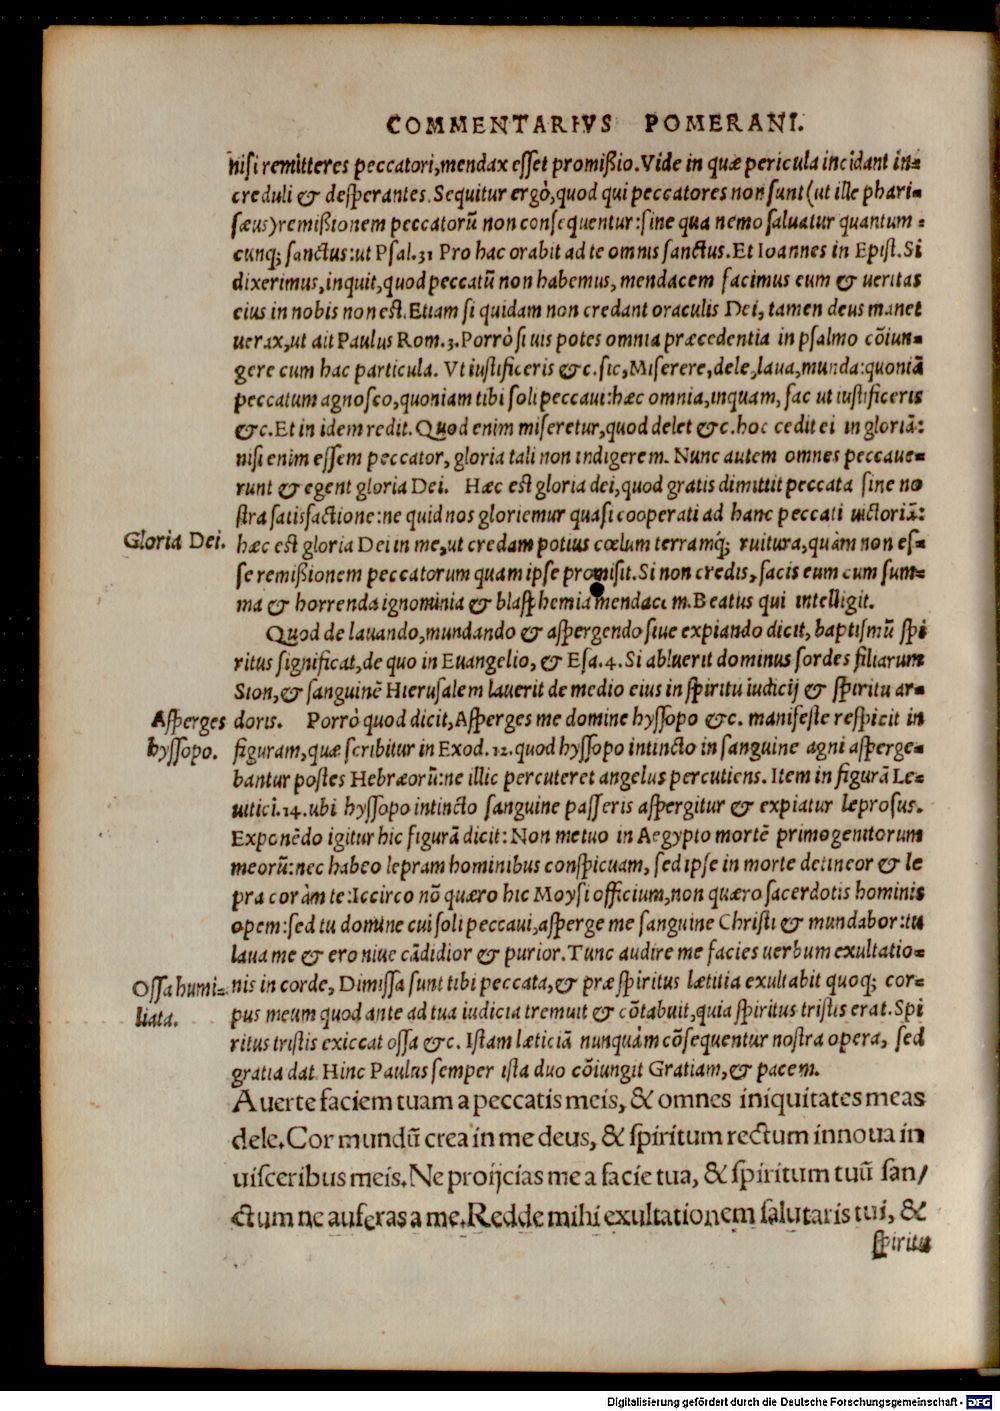 COMMENTARIVS POMERANI.
nisi remitteres peccatori, mendax esset promißio. Vide in quæ pericula incidant in=
creduli & desperantes. Sequitur ergò, quod qui peccatores non sunt (ut ille phari=
sæus) remißionem peccatorū non consequentur: sine qua nemo saluatur quantum=
cunq; sanctus: ut Psal. 31 Pro hac orabit ad te omnis sanctus. Et Ioannes in Epist. Si
dixerimus, inquit, quod peccatū non habemus, mendacem facimus eum & ueritas
eius in nobis non est. Etiam si quidam non credant oraculis Dei, tamen deus manet
uerax, ut ait Paulus Rom. 3. Porrò si uis potes omnia præcedentia in psalmo cōiun=
gere cum hac particula. Vt iustificeris &c. sic, Miserere, dele, laua, munda: quoniā
peccatum agnosco, quoniam tibi soli peccaui: hæc omnia, inquam, fac ut iustificeris
&c. Et in idem redit. Quod enim miseretur, quod delet &c. hoc cedit ei in gloriā:
nisi enim essem peccator, gloria tali non indigerem. Nunc autem omnes peccaue=
runt & egent gloria Dei. Hæc est gloria dei, quod gratis dimittit peccata sine no
stra satisfactione: ne quid nos gloriemur quasi cooperati ad hanc peccati uictoriā:
Gloria Dei.
hæc est gloria Dei in me, ut credam potius cœlum terramq́; ruitura, quàm non es=
se remißionem peccatorum quam ipse promisit. Si non credis, facis eum cum sum=
ma & horrenda ignominia & blasphemia mendacem. Beatus qui intelligit.
Quod de lauando, mundando & aspergendo siue expiando dicit, baptismū spi
ritus significat, de quo in Euangelio, & Esa. 4. Si abluerit dominus sordes filiarum
Sion, & sanguinē Hierusalem lauerit de medio eius in spiritu iudicij & spiritu ar=
Asperges
hyssopo.
doris. Porrò quod dicit, Asperges me domine hyssopo &c. manifeste respicit in
figuram, quæ scribitur in Exod. 12. quod hyssopo intincto in sanguine agni asperge=
bantur postes Hebræorū: ne illic percuteret angelus percutiens. Item in figurā Le=
uitici. 14. ubi hyssopo intincto sanguine passeris aspergitur & expiatur leprosus.
Exponēdo igitur hic figurā dicit: Non metuo in Aegypto mortē primogenitorum
meorū: nec habeo lepram hominibus conspicuam, sed ipse in morte detineor & le
pra coràm te: Iccirco nō quæro hic Moysi officium, non quæro sacerdotis hominis
opem: sed tu domine cui soli peccaui, asperge me sanguine Christi & mundabor: tu
laua me & ero niue cādidior & purior. Tunc audire me facies uerbum exultatio=
Ossa humi=
liata.
nis in corde, Dimissa sunt tibi peccata, & præ spiritus lætitia exultabit quoq; cor=
pus meum quod ante ad tua iudicia tremuit & cōtabuit, quia spiritus tristis erat. Spi
ritus tristis exiccat ossa &c. Istam læticiā nunquàm cōsequentur nostra opera, sed
gratia dat. Hinc Paulus semper ista duo cōiungit Gratiam, & pacem.
Auerte faciem tuam a peccatis meis, & omnes iniquitates meas
dele. Cor mundū crea in me deus, & spiritum rectum innoua in
uisceribus meis. Ne proijcias me a facie tua, & spiritum tuū san/
ctum ne auferas a me. Redde mihi exultationem salutaris tui, &
spiritu
Digitalisierung gefördert durch die Deutsche Forschungsgemeinschaft - DFG